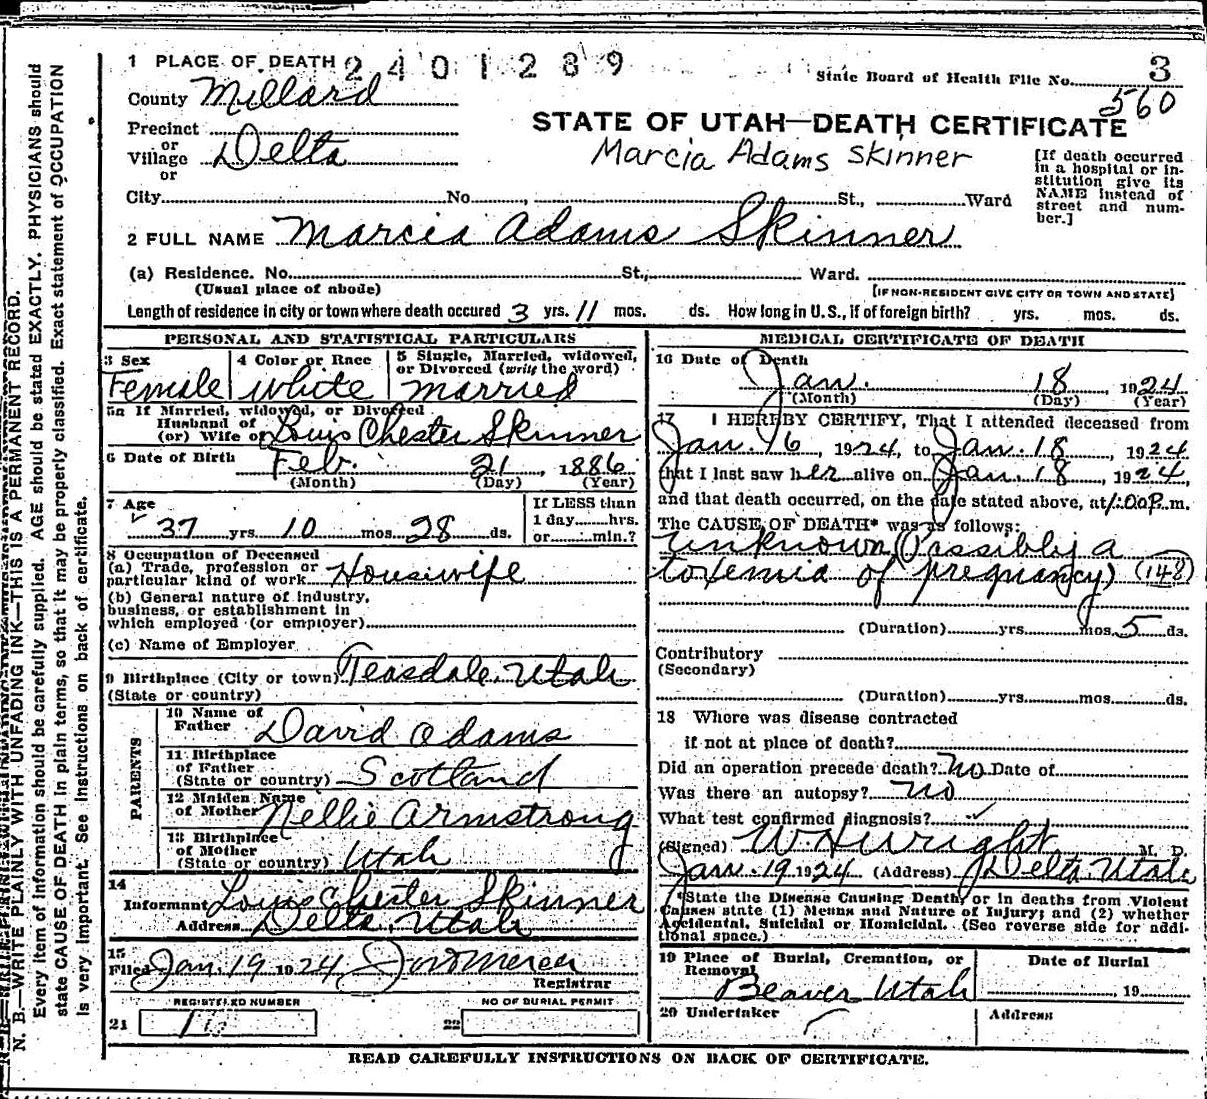 1 PLACE OF DEATH 2401289
State Board of Health File No. 3
560
County Millard
STATE OF UTAH—DEATH CERTIFICATE
Precinct
or
Village Delta
or
Marcia Adams Skinner
[If death occurred
in a hospital or in-
stitution give its
NAME instead of
street and num-
ber.]
City No. , St., Ward
2 FULL NAME Marcia Adams Skinner
(a) Residence. No. St., Ward.
(Usual place of abode)
[IF NON-RESIDENT GIVE CITY OR TOWN AND STATE]
Length of residence in city or town where death occured 3 yrs. 11 mos. ds. How long in U. S., if of foreign birth? yrs. mos. ds.
PERSONAL AND STATISTICAL PARTICULARS
3 Sex
Female
4 Color or Race
White
5 Single, Married, widowed,
or Divorced (write the word)
Married
5a If Married, widowed, or Divorced
Husband of
(or) Wife of Louis Chester Skinner
6 Date of Birth Feb. 21, 1886
(Month) (Day) (Year)
7 Age
37 yrs. 10 mos. 28 ds.
If LESS than
1 day hrs.
or min.?
8 Occupation of Deceased
(a) Trade, profession or
particular kind of work Housewife
(b) General nature of industry,
business, or establishment in
which employed (or employer)
(c) Name of Employer
9 Birthplace (City or town) Teasdale, Utah
(State or country)
PARENTS
10 Name of
Father David Adams
11 Birthplace
of Father
(State or country) Scotland
12 Maiden Name
of Mother Nellie Armstrong
13 Birthplace
of Mother
(State or country) Utah
14
Informant Louis Chester Skinner
Address Delta, Utah
15
Filed Jan. 19 1924
Registrar
REGISTERED NUMBER
21
NO OF BURIAL PERMIT
22
MEDICAL CERTIFICATE OF DEATH
16 Date of Death
Jan. 18, 1924
(Month) (Day) (Year)
17 I HEREBY CERTIFY, That I attended deceased from
Jan. 16, 1924, to Jan. 18, 1924
that I last saw her alive on Jan. 18, 1924
and that death occurred, on the date stated above, at 1:00 P. m.
The CAUSE OF DEATH* was as follows:
Unknown (Possibly a
toxemia of pregnancy) (148)
(Duration) yrs. mos. 5 ds.
Contributory
(Secondary)
(Duration) yrs. mos. ds.
18 Where was disease contracted
if not at place of death?
Did an operation precede death? No Date of
Was there an autopsy? No
What test confirmed diagnosis?
(Signed) W. H. Wright M. D.
Jan. 19 1924 (Address) Delta, Utah
*State the Disease Causing Death, or in deaths from Violent
Causes state (1) Means and Nature of Injury; and (2) whether
Accidental, Suicidal or Homicidal. (See reverse side for addi-
tional space.)
19 Place of Burial, Cremation, or
Removal
Beaver Utah
Date of Burial
, 19
20 Undertaker
Address
READ CAREFULLY INSTRUCTIONS ON BACK OF CERTIFICATE.
N. B.—WRITE PLAINLY WITH UNFADING INK—THIS IS A PERMANENT RECORD.
Every item of information should be carefully supplied. AGE should be stated EXACTLY. PHYSICIANS should
state CAUSE OF DEATH in plain terms, so that it may be properly classified. Exact statement of OCCUPATION
is very important. See instructions on back of certificate.